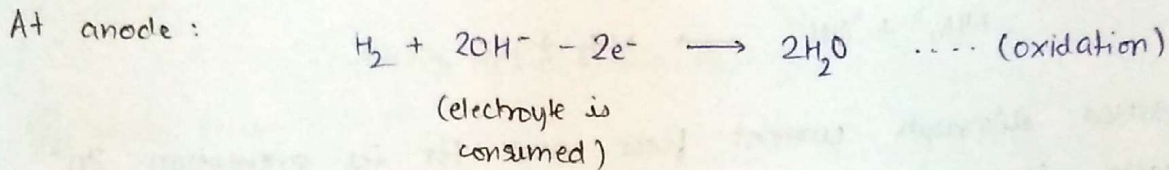 At anode :
H₂ + 2OH⁻ - 2e⁻ ⟶ 2H₂O .... (oxidation)
(electroyte is
consumed)